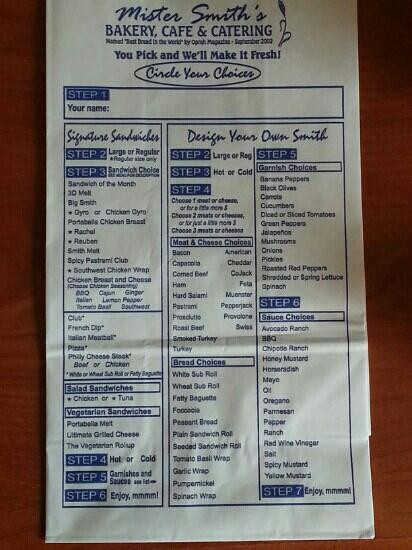 Mister Smith's
BAKERY, CAFE & CATERING
Named "Best Bread in the World" by Oprah Magazine - September 2003
You Pick and We'll Make It Fresh!
Circle Your Choices
STEP 1
Your name:
Signature Sandwiches
STEP 2 Large or Regular
★Regular size only
STEP 3 Sandwich Choice
SEE MENU FOR DESCRIPTION
Sandwich of the Month
3D Melt
Big Smith
★ Gyro or Chicken Gyro
Portabella Chicken Breast
★ Rachel
★ Reuben
Smith Melt
Spicy Pastrami Club
★ Southwest Chicken Wrap
Chicken Breast and Cheese
(Choose Chicken Seasoning)
BBQ Cajun Ginger
Italian Lemon Pepper
Tomato Basil Southwest
Club*
French Dip*
Italian Meatball*
Pizza*
Philly Cheese Steak*
Beef or Chicken
* White or Wheat Sub Roll or Fatty Baguette
Salad Sandwiches
★ Chicken or ★ Tuna
Vegetarian Sandwiches
Portabella Melt
Ultimate Grilled Cheese
The Vegetarian Rollup
STEP 4 Hot or Cold
STEP 5 Garnishes and
Sauces see list
STEP 6 Enjoy, mmmm!
Design Your Own Smith
STEP 2 Large or Reg
STEP 3 Hot or Cold
STEP 4
Choose 1 meat or cheese,
or for a little more $
Choose 2 meats or cheeses,
or for just a little more $
Choose 3 meats or cheeses
Meat & Cheese Choices
Bacon American
Capocolla Cheddar
Corned Beef CoJack
Ham Feta
Hard Salami Muenster
Pastrami Pepperjack
Prosciutto Provolone
Roast Beef Swiss
Smoked Turkey
Turkey
Bread Choices
White Sub Roll
Wheat Sub Roll
Fatty Baguette
Foccacia
Peasant Bread
Plain Sandwich Roll
Seeded Sandwich Roll
Tomato Basil Wrap
Garlic Wrap
Pumpernickel
Spinach Wrap
STEP 5
Garnish Choices
Banana Peppers
Black Olives
Carrots
Cucumbers
Diced or Sliced Tomatoes
Green Peppers
Jalapeños
Mushrooms
Onions
Pickles
Roasted Red Peppers
Shredded or Spring Lettuce
Spinach
STEP 6
Sauce Choices
Avocado Ranch
BBQ
Chipotle Ranch
Honey Mustard
Horseradish
Mayo
Oil
Oregano
Parmesan
Pepper
Ranch
Red Wine Vinegar
Salt
Spicy Mustard
Yellow Mustard
STEP 7 Enjoy, mmmm!